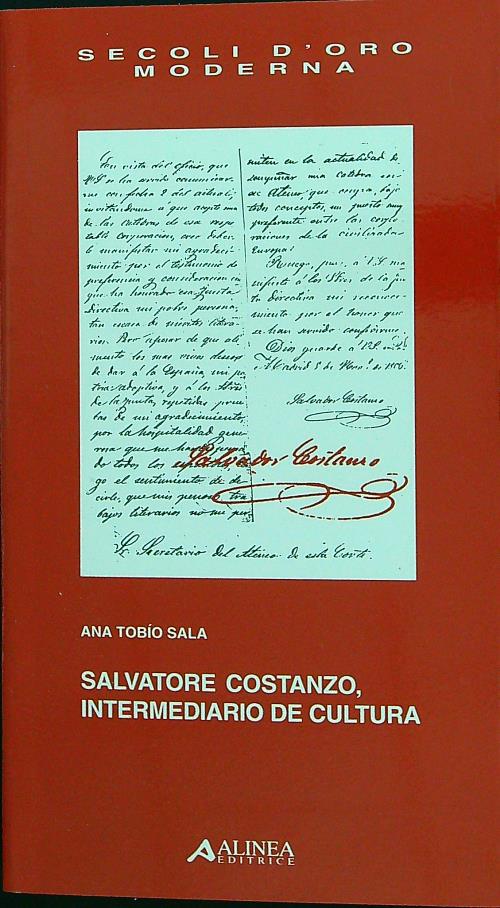 SECOLI D'ORO
MODERNA
En vista del oficio, que
V.S. se ha servido comunicar-
me con fecha 2 del actual,
invitándome a que acepte una
de las cátedras de esa respe-
table corporacion, creo deber
le manifestar mi agradeci-
miento por el testimonio de
preferencia y consideracion con
que ha honrado esa Junta
Directiva mi pobre persona,
tan escasa de méritos litera-
rios. Por a pesar de que ali-
mento los mas vivos deseos
de dar á la España, mi pa-
tria adoptiva, y á los
de la Junta, repetidas prue-
bas de mi agradecimiento,
por la hospitalidad gene-
rosa que me
do todos los
go el sentimiento de de-
cirle, que mis penosos tra-
bajos literarios no me per-
miten en la actualidad de-
sempeñar una catedra en
ese Ateneo, que ocupa, bajo
todos conceptos, un puesto muy
preferente entre las corpo-
raciones de la civilizada
Europa.
Ruego, pues, a V.S. ma-
nifieste á los Sres. de la Jun-
ta Directiva mi reconoci-
miento por el honor que
se han servido conferirme.
Dios guarde á V.S.
Madrid 5 de de 1856.
Salvador Costanzo
Salvador Costanzo
Sr. Secretario del Ateneo de esta Corte.
ANA TOBÍO SALA
SALVATORE COSTANZO,
INTERMEDIARIO DE CULTURA
ALINEA
EDITRICE